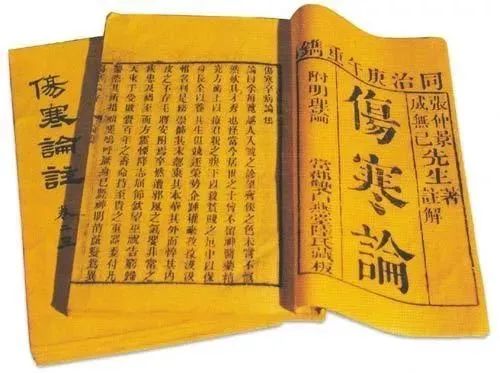 同治庚午重鐫
張仲景
成無己
先生
著
註解
傷寒論
附明理論 常郡雙白燕堂陸氏藏板
傷寒卒病論集
論曰余每覽越人入虢之診望齊侯之色未嘗不慨
然歎其才秀也怪當今居世之士曾不留神醫藥精
究方術上以療君親之疾下以救貧賤之厄中以保
身長全以養其生但競逐榮勢企踵權豪孜孜汲汲
惟名利是務崇飾其末忽棄其本華其外而悴其內
皮之不存毛將安附焉卒然遭邪風之氣嬰非常之
疾患及禍至而方震慄降志屈節欽望巫祝告窮歸
天束手受敗賷百年之壽命持至貴之重器委付凡
醫恣其所措咄嗟嗚呼厥身已斃神明消滅變為異
傷寒論註 卷